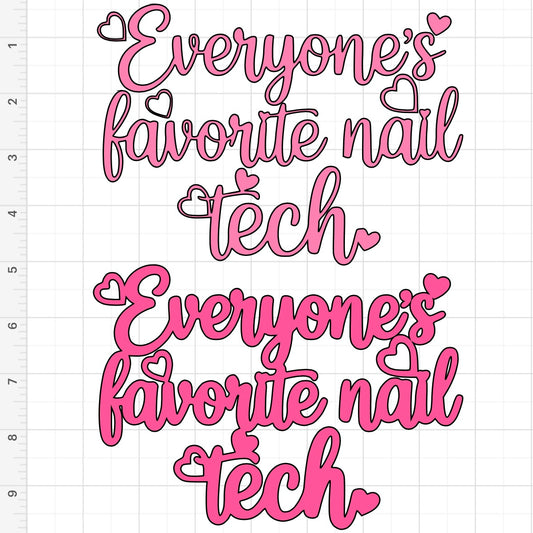 Everyone's
favorite nail
tech
Everyone's
favorite nail
tech
1
2
3
4
5
6
7
8
9